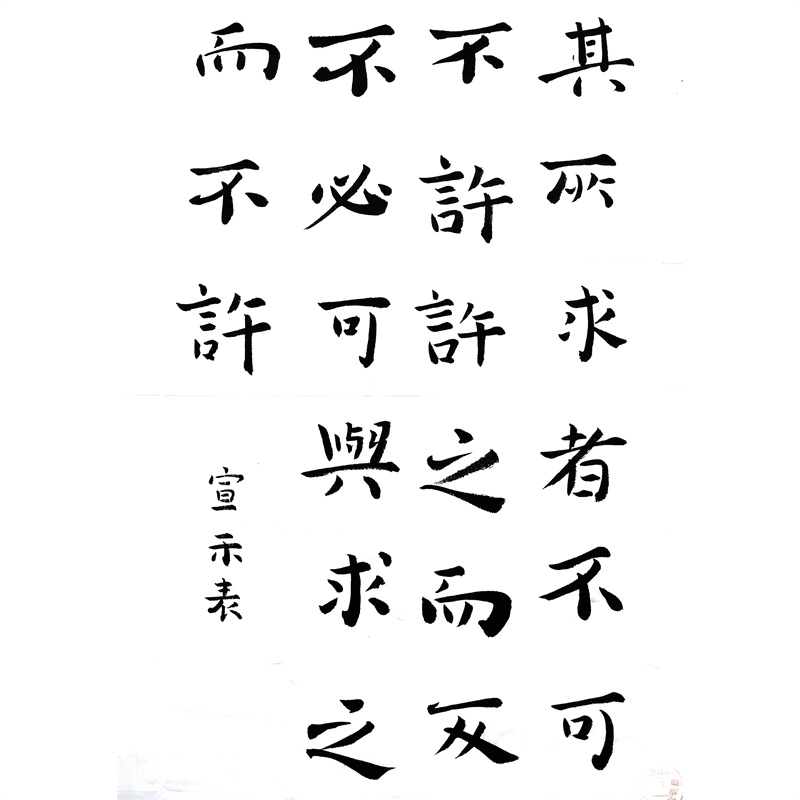 其所求者不可
不許許之而反
不必可與求之
而不許
宣示表